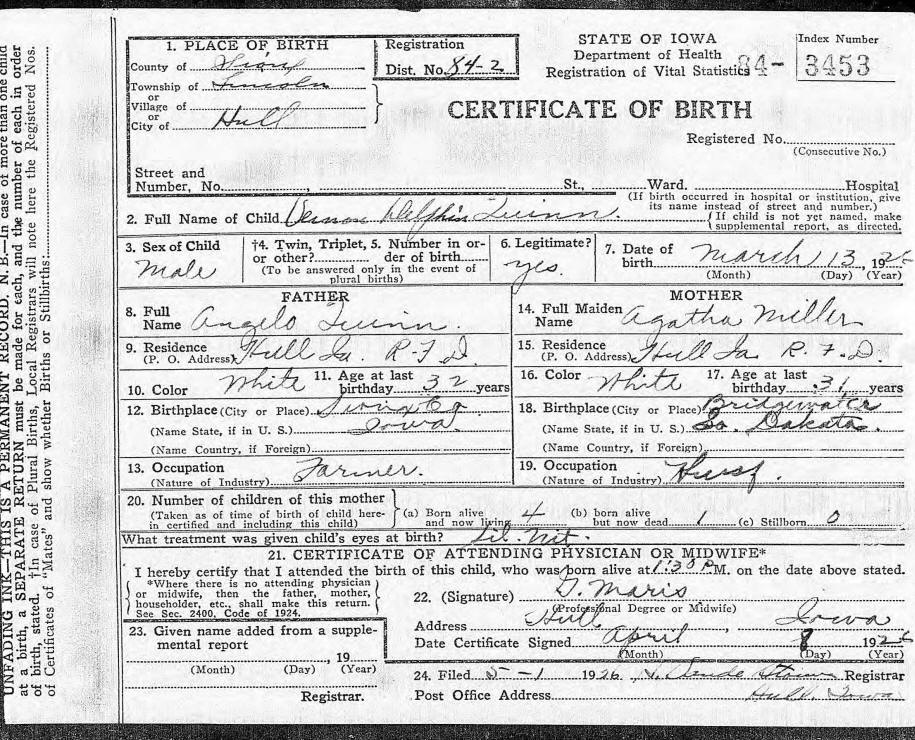 UNFADING INK—THIS IS A PERMANENT RECORD. N.B.—In case of more than one child
at a birth, a SEPARATE RETURN must be made for each, and the number of each in order
of birth, stated. †In case of Plural Births, Local Registrars will note here the Registered Nos.
of Certificates of "Mates" and show whether Births or Stillbirths:
1. PLACE OF BIRTH
County of Sioux
Township of Lincoln
or
Village of
or
City of Hull
Registration
Dist. No. 84-2
STATE OF IOWA
Department of Health
Registration of Vital Statistics
84- 3453
Index Number
CERTIFICATE OF BIRTH
Registered No.
(Consecutive No.)
Street and
Number, No. , St., Ward. Hospital
(If birth occurred in hospital or institution, give
its name instead of street and number.)
2. Full Name of Child Vernon Delphin Quinn.
If child is not yet named, make
supplemental report, as directed.
3. Sex of Child
Male
†4. Twin, Triplet,
or other?
5. Number in or-
der of birth
(To be answered only in the event of
plural births)
6. Legitimate?
yes.
7. Date of
birth March 13, 1926
(Month) (Day) (Year)
FATHER
8. Full
Name Angelo Quinn.
9. Residence
(P. O. Address) Hull Ia. R.F.D
10. Color White
11. Age at last
birthday 32 years
12. Birthplace (City or Place) Sioux Co
(Name State, if in U. S.) Iowa
(Name Country, if Foreign)
13. Occupation
(Nature of Industry) Farmer.
MOTHER
14. Full Maiden
Name Agatha Miller
15. Residence
(P. O. Address) Hull Ia R.F.D.
16. Color White
17. Age at last
birthday 31 years
18. Birthplace (City or Place) Bridgewater
(Name State, if in U. S.) So. Dakota.
(Name Country, if Foreign)
19. Occupation
(Nature of Industry)
20. Number of children of this mother
(Taken as of time of birth of child here-
in certified and including this child)
(a) Born alive
and now living 4
(b) born alive
but now dead 1
(c) Stillborn 0
What treatment was given child's eyes at birth? Sil. Nit.
21. CERTIFICATE OF ATTENDING PHYSICIAN OR MIDWIFE*
I hereby certify that I attended the birth of this child, who was born alive at 1:30 P M. on the date above stated.
*Where there is no attending physician
or midwife, then the father, mother,
householder, etc., shall make this return.
See Sec. 2400. Code of 1924.
22. (Signature) G. Maris
(Professional Degree or Midwife)
Address Hull Iowa
Date Certificate Signed April 8 1926
(Month) (Day) (Year)
23. Given name added from a supple-
mental report
, 19
(Month) (Day) (Year)
Registrar.
24. Filed 5-1 1926 Registrar
Post Office Address Hull, Iowa